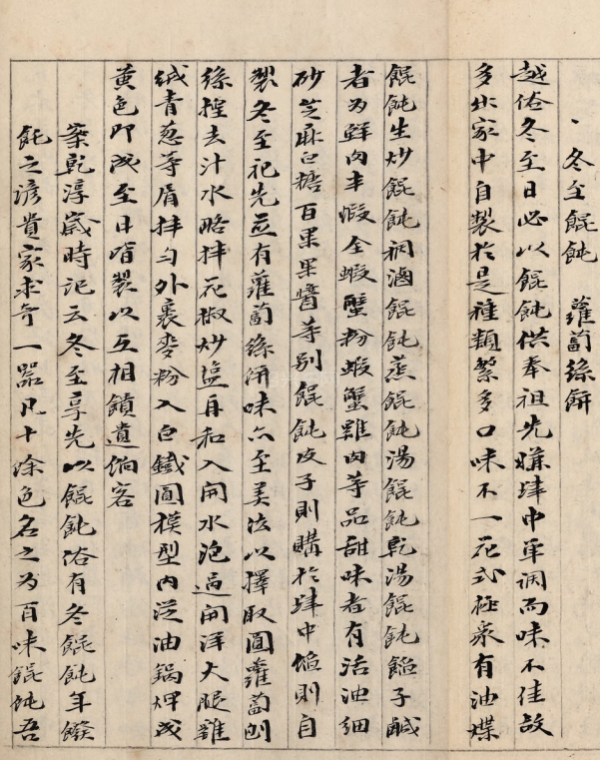 、冬至餛飩　蘿蔔絲餅
越俗冬至日必以餛飩供奉祖先嫌肆中單調而味不佳故
多出家中自製於是種類繁多口味不一花式極衆有油煠
餛飩生炒餛飩祠滷餛飩蒸餛飩湯餛飩乾湯餛飩餡子鹹
者为鮮肉丰蝦全蝦蟹粉蝦蟹雞肉等品甜味者有活油细
砂芝麻白糖百果果醬等别餛飩皮子則購於肆中餡則自
製冬至祀先並有蘿蔔絲餅味亦至美法以擇取圓蘿蔔刨
絲揑去汁水略拌花椒炒塩再和入開水泡過開洋大腿雞
絨青葱等屑拌勻外裹麥粉入白鐵圓模型内泛油鍋煠成
黄色即成至日皆製以互相饋遺倘客
蔡乾淳歲時记云冬至享先以餛飩俗有冬餛飩年餺
飩之諺貴家求奇一器凡十馀色名之为百味餛飩吾